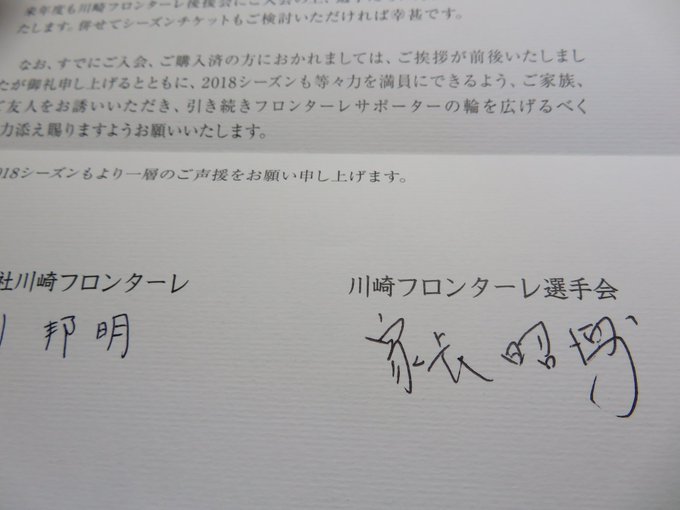 来年度も川崎フロンターレ後援会にご入会の上、
たします。併せてシーズンチケットもご検討いただければ幸甚です。
なお、すでにご入会、ご購入済の方におかれましては、ご挨拶が前後いたしまし
たが御礼申し上げるとともに、2018シーズンも等々力を満員にできるよう、ご家族、
ご友人をお誘いいただき、引き続きフロンターレサポーターの輪を広げるべく
力添え賜りますようお願いいたします。
2018シーズンもより一層のご声援をお願い申し上げます。
社川崎フロンターレ
邦明
川崎フロンターレ選手会
家長昭博